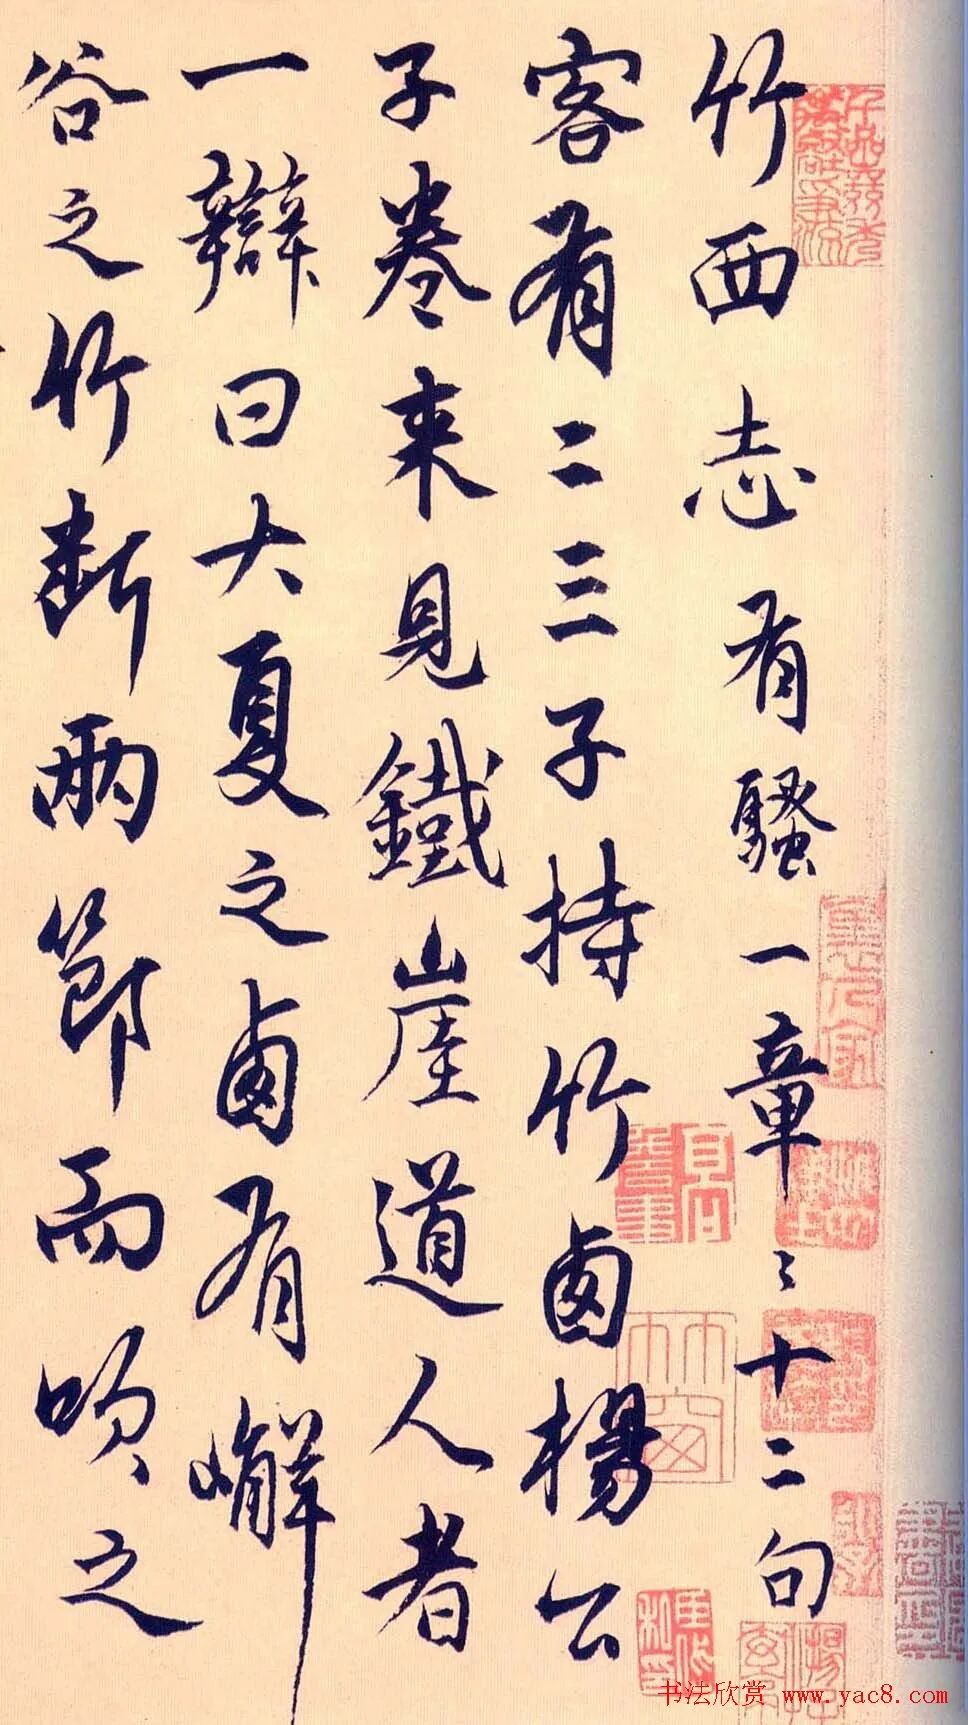 竹西志有騷一章〻十二句
客有二三子持竹西楊公
子卷來見鐵崖道人者
一辯曰大夏之西有嶰
谷之竹斷兩節而吹之
书法欣赏 www.yac8.com